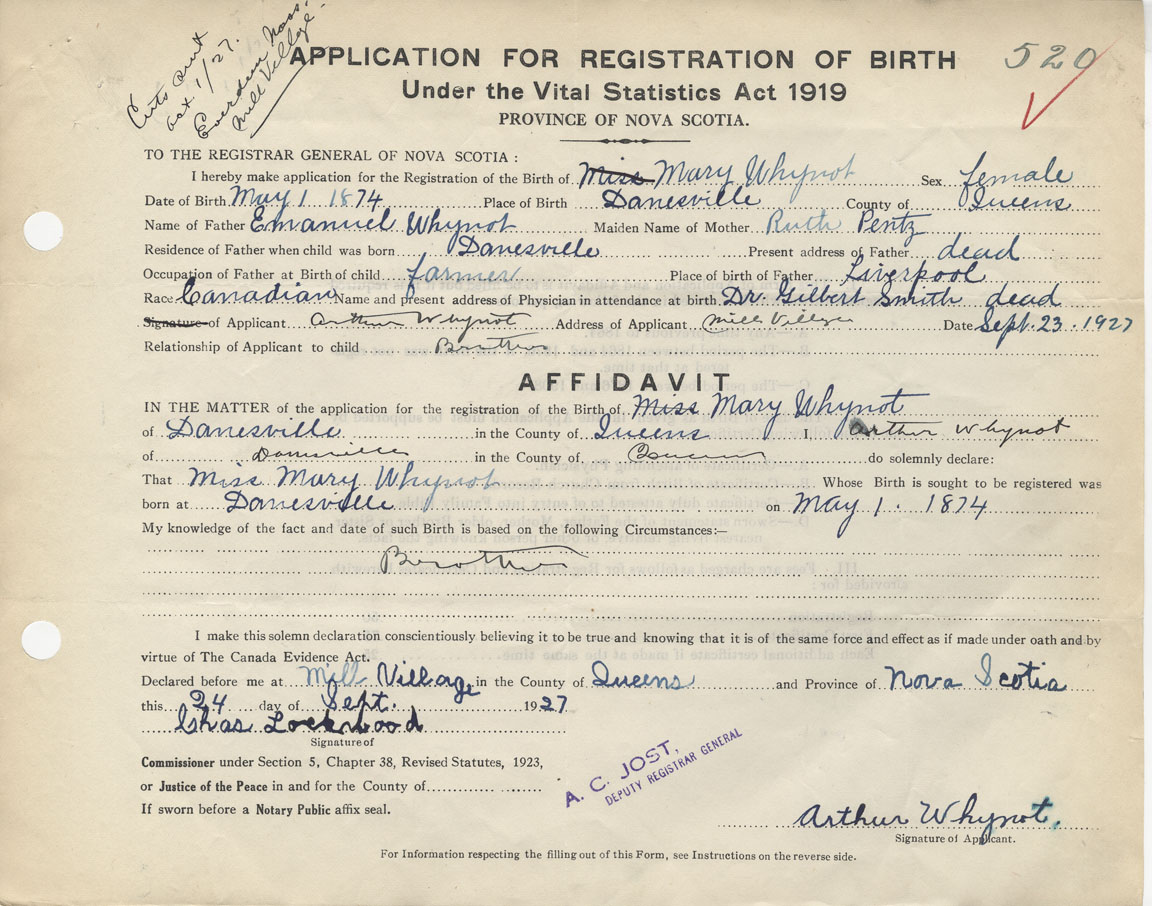 Certs sent
Oct. 1/27.
Mass.
Mill Village
APPLICATION FOR REGISTRATION OF BIRTH
520
Under the Vital Statistics Act 1919
PROVINCE OF NOVA SCOTIA.
TO THE REGISTRAR GENERAL OF NOVA SCOTIA :
I hereby make application for the Registration of the Birth of Miss Mary Whynot Sex female
Date of Birth May 1 1874 Place of Birth Danesville County of Queens
Name of Father Emanuel Whynot Maiden Name of Mother Ruth Pentz
Residence of Father when child was born Danesville Present address of Father dead
Occupation of Father at Birth of child farmer Place of birth of Father Liverpool
Race Canadian Name and present address of Physician in attendance at birth Dr. Gilbert Smith dead
Signature of Applicant Arthur Whynot Address of Applicant Mill Village Date Sept. 23. 1927
Relationship of Applicant to child Brother
AFFIDAVIT
IN THE MATTER of the application for the registration of the Birth of Miss Mary Whynot
of Danesville in the County of Queens I, Arthur Whynot
of Danesville in the County of Queens do solemnly declare:
That Miss Mary Whynot Whose Birth is sought to be registered was
born at Danesville on May 1. 1874
My knowledge of the fact and date of such Birth is based on the following Circumstances:—
Brother
I make this solemn declaration conscientiously believing it to be true and knowing that it is of the same force and effect as if made under oath and by
virtue of The Canada Evidence Act.
Declared before me at Mill Village in the County of Queens and Province of Nova Scotia
this 24 day of Sept. 1927
Chas Lockwood
Signature of
Commissioner under Section 5, Chapter 38, Revised Statutes, 1923,
or Justice of the Peace in and for the County of
If sworn before a Notary Public affix seal.
A. C. JOST,
DEPUTY REGISTRAR GENERAL
Arthur Whynot.
Signature of Applicant.
For Information respecting the filling out of this Form, see Instructions on the reverse side.